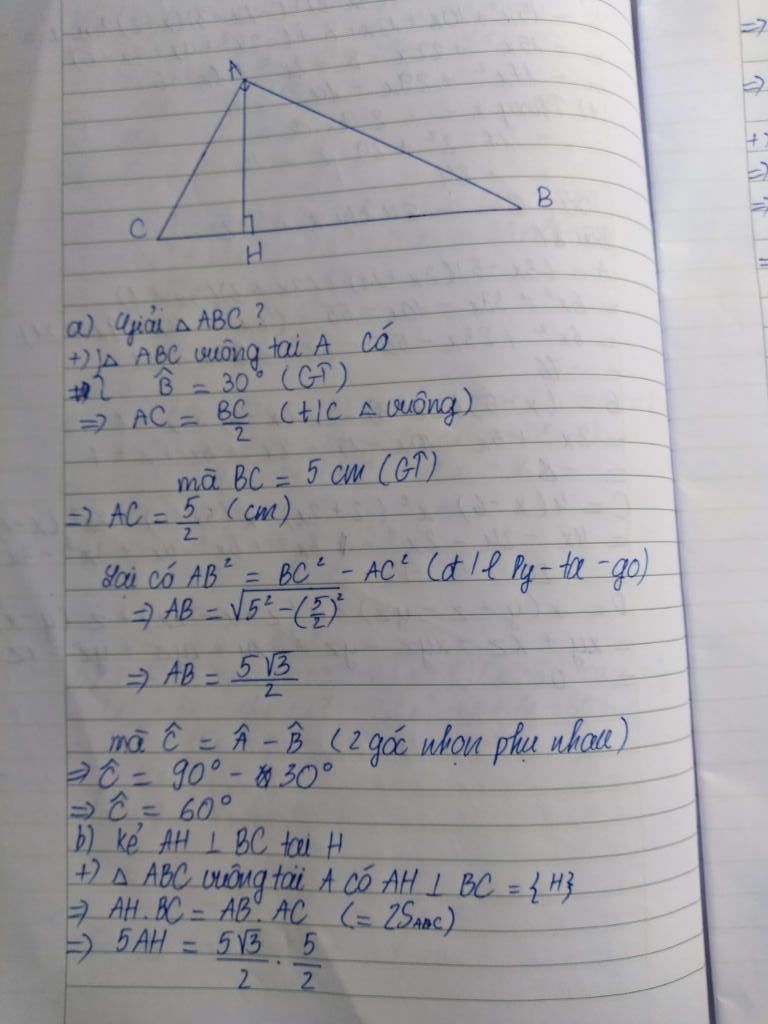 A
C
H
B
a) Giải △ ABC ?
+) △ ABC vuông tại A có
B̂ = 30° (GT)
=> AC = BC/2 (t/c △ vuông)
mà BC = 5 cm (GT)
=> AC = 5/2 (cm)
Lại có AB² = BC² - AC² (đ/l Py-ta-go)
=> AB = √(5² - (5/2)²)
=> AB = 5√3/2
mà Ĉ = Â - B̂ (2 góc nhọn phụ nhau)
=> Ĉ = 90° - 30°
=> Ĉ = 60°
b) Kẻ AH ⊥ BC tại H
+) △ ABC vuông tại A có AH ⊥ BC = {H}
=> AH.BC = AB.AC (= 2S_ABC)
=> 5AH = 5√3/2 . 5/2